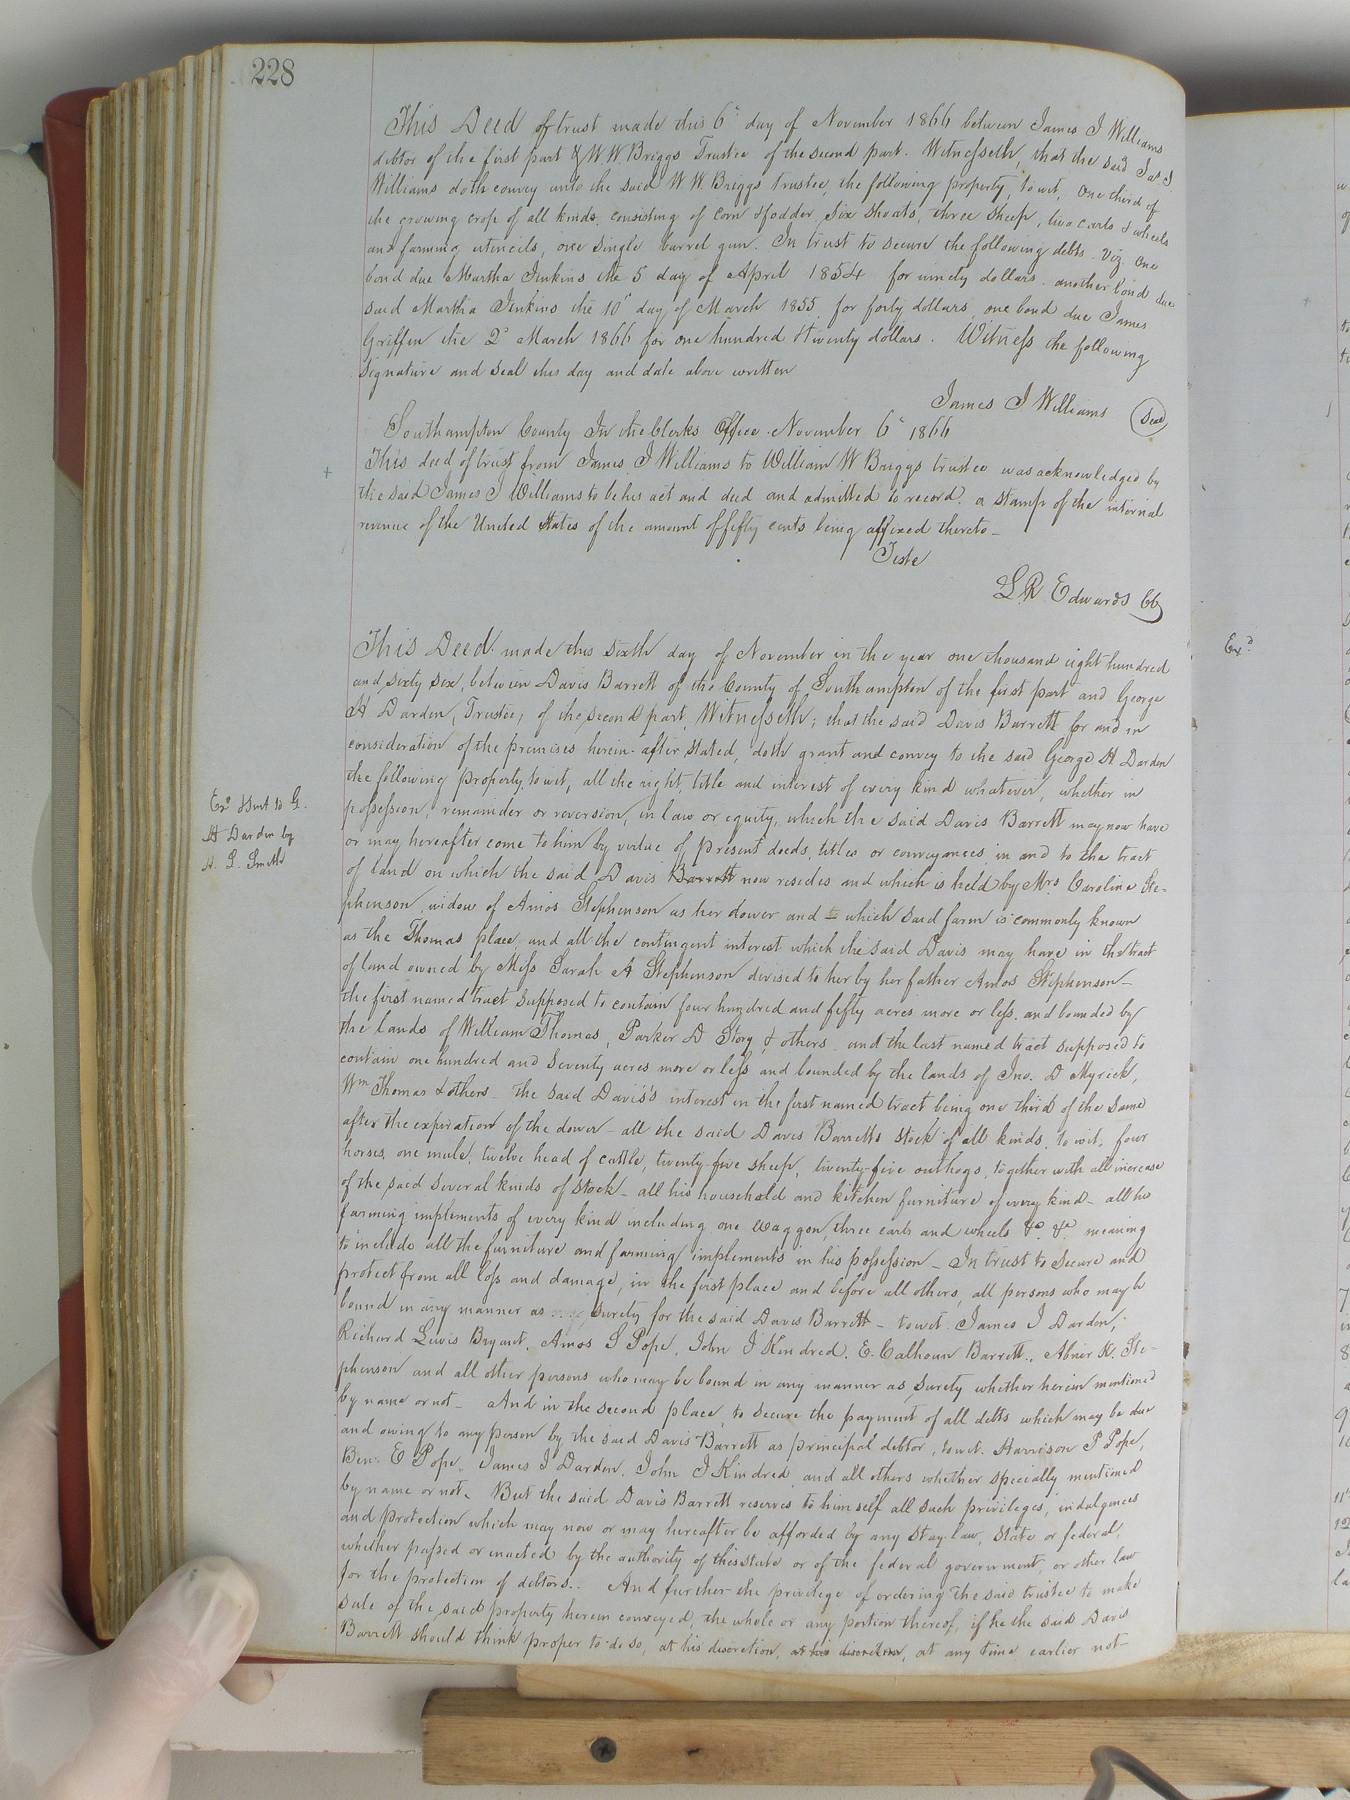 228
This Deed of trust made this 6" day of November 1866 between James J Williams
debtor of the first part & W. W. Briggs Trustee of the second part. Witnesseth, that the said Jas J.
Williams doth convey unto the said W W. Briggs trustee, the following property, to wit, one third of
the growing crop of all kinds, consisting of corn & fodder, six shoats, three sheep, two carts & wheels
and farming utencils, one single barrel gun. In trust to secure the following debts. viz. one
bond due Martha Jenkins the 5 day of April 1854 for ninety dollars. another bond due
said Martha Jenkins the 10" day of March 1855 for forty dollars, one bond due James
Griffin the 2" March 1866 for one hundred & twenty dollars. Witness the following
signature and seal this day and date above written
James J Williams (Seal)
Southampton County In the Clerks Office. November 6" 1866
This deed of trust from James J Williams to William W Briggs trustee was acknowledged by
the said James J Williams to be his act and deed and admitted to record. a stamp of the internal
revenue of the United States of the amount of fifty cents being affixed thereto-
Teste
L. R. Edwards CC
This Deed. made this sixth day of November in the year one thousand eight hundred
and sixty six, between Davis Barrett of the County of Southampton of the first part and George
H Darden, Trustee, of the second part, Witnesseth; that the said Davis Barrett for and in
consideration of the premises herein-after stated, doth grant and convey to the said George H Darden
the following property, to wit, all the right, title and interest of every kind whatever, whether in
possession, remainder or reversion, in law or equity, which the said Davis Barrett may now have
or may hereafter come to him by virtue of present deeds, titles or conveyances, in and to the tract
of land on which the said Davis Barrett now resides and which is held by Mrs Caroline Ste-
phenson, widow of Amos Stephenson as her dower and to which said farm is commonly known
as the Thomas place, and all the contingent interest which the said Davis may have in the tract
of land owned by Miss Sarah A Stephenson devised to her by her father Amos Stephenson-
the first named tract supposed to contain four hundred and fifty acres more or less. and bounded by
the lands of William Thomas, Parker D Story, & others. and the last named tract supposed to
contain one hundred and seventy acres more or less and bounded by the lands of Jno. D Myrick,
Wm Thomas & others- the said Davis's interest in the first named tract being one third of the same
after the expiration of the dower- all the said Davis Barretts stock of all kinds, to wit, four
horses, one mule, twelve head of cattle, twenty-five sheep, twenty-five outhogs, together with all increase
of the said several kinds of stock- all his household and kitchen furniture of every kind- all his
farming implements of every kind including one waggon, three carts and wheels &c. &c. meaning
to include all the furniture and farming implements in his possession- In trust to secure and
protect from all loss and damage, in the first place and before all others, all persons who may be
bound in any manner as surety for the said Davis Barrett- to wit. James J Darden,
Richard Lewis Bryant, Amos S Pope, John J Kindred, E. Calhoun Barrett., Abner K. Ste-
phenson and all other persons who may be bound in any manner as surety whether herein mentioned
by name or not- And in the second place, to secure the payment of all debts which may be due
and owing to any person by the said Davis Barrett as principal debtor, to wit. Harrison P Pope,
Ben. E Pope, James J Darden, John J Kindred and all others whether specially mentioned
by name or not. But the said Davis Barrett reserves to himself all such privileges, indulgences
and protection which may now or may hereafter be afforded by any stay-law, state or federal,
whether passed or enacted by the authority of this state or of the federal government, or other law
for the protection of debtors.. And further the privilege of ordering the said trustee to make
sale of the said property herein conveyed, the whole or any portion thereof, if he the said Davis
Barrett should think proper to do so, at his discretion, at his discretion, at any time earlier not-
Exd & sent to G.
H Darden by
Smith
Exd